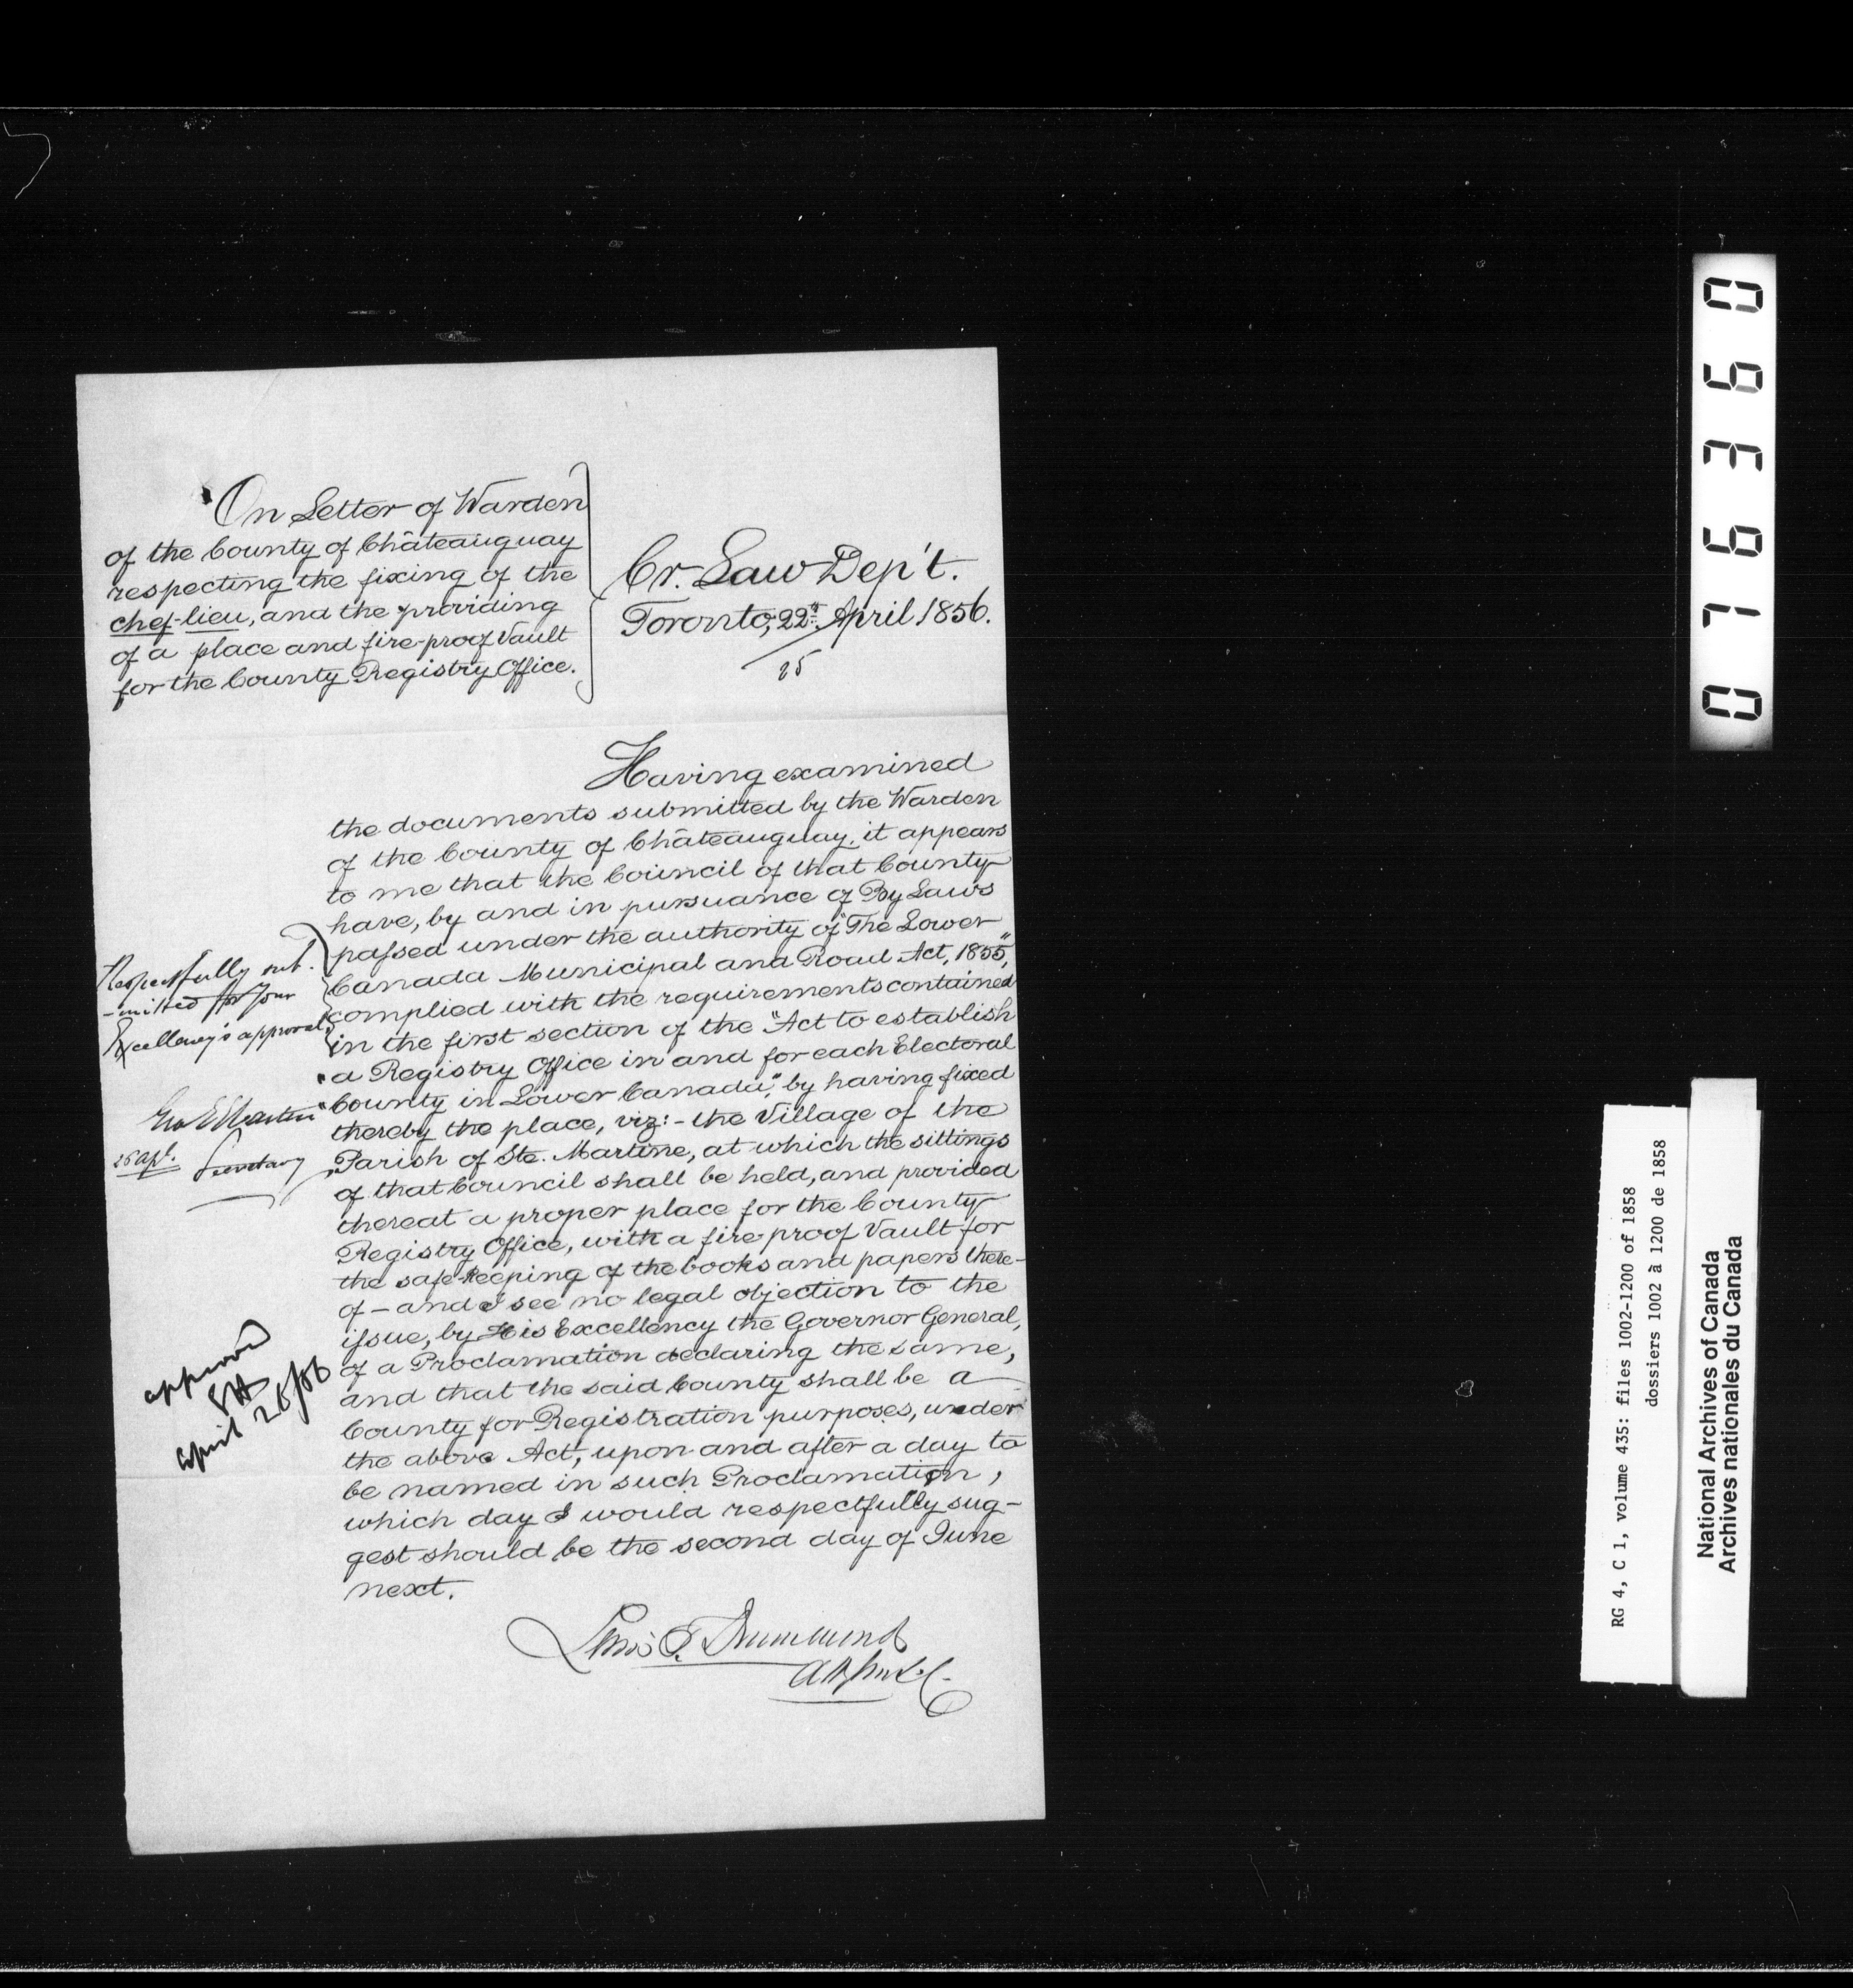 On Letter of Warden
of the County of Châteauguay
respecting the fixing of the
chef-lieu, and the providing
of a place and fire-proof Vault
for the County Registry Office.
Cr. Law Dep't.
Toronto, 22nd. April 1856.
25
Having examined
the documents submitted by the Warden
of the County of Châteauguay, it appears
to me that the Council of that County
have, by and in pursuance of By Laws
passed under the authority of "The Lower
Canada Municipal and Road Act, 1855,"
complied with the requirements contained
in the first section of the "Act to establish
"a Registry Office in and for each Electoral
"County in Lower Canada," by having fixed
thereby the place, viz:- the Village of the
Parish of Ste. Martine, at which the sittings
of that Council shall be held, and provided
thereat a proper place for the County
Registry Office, with a fire proof Vault for
the safe-keeping of the books and papers there-
of - and I see no legal objection to the
issue, by His Excellency the Governor General,
of a Proclamation declaring the same,
and that the said County shall be a
County for Registration purposes, under
the above Act, upon and after a day to
be named in such Proclamation,
which day I would respectfully sug-
gest should be the second day of June
next.
Lewis T. Drummond
Respectfully sub-
-mitted for Your
Excellency's approval
Secretary
approved
EH
April 26/56
076360
RG 4, C 1, volume 435: files 1002-1200 of 1858
dossiers 1002 à 1200 de 1858
National Archives of Canada
Archives nationales du Canada